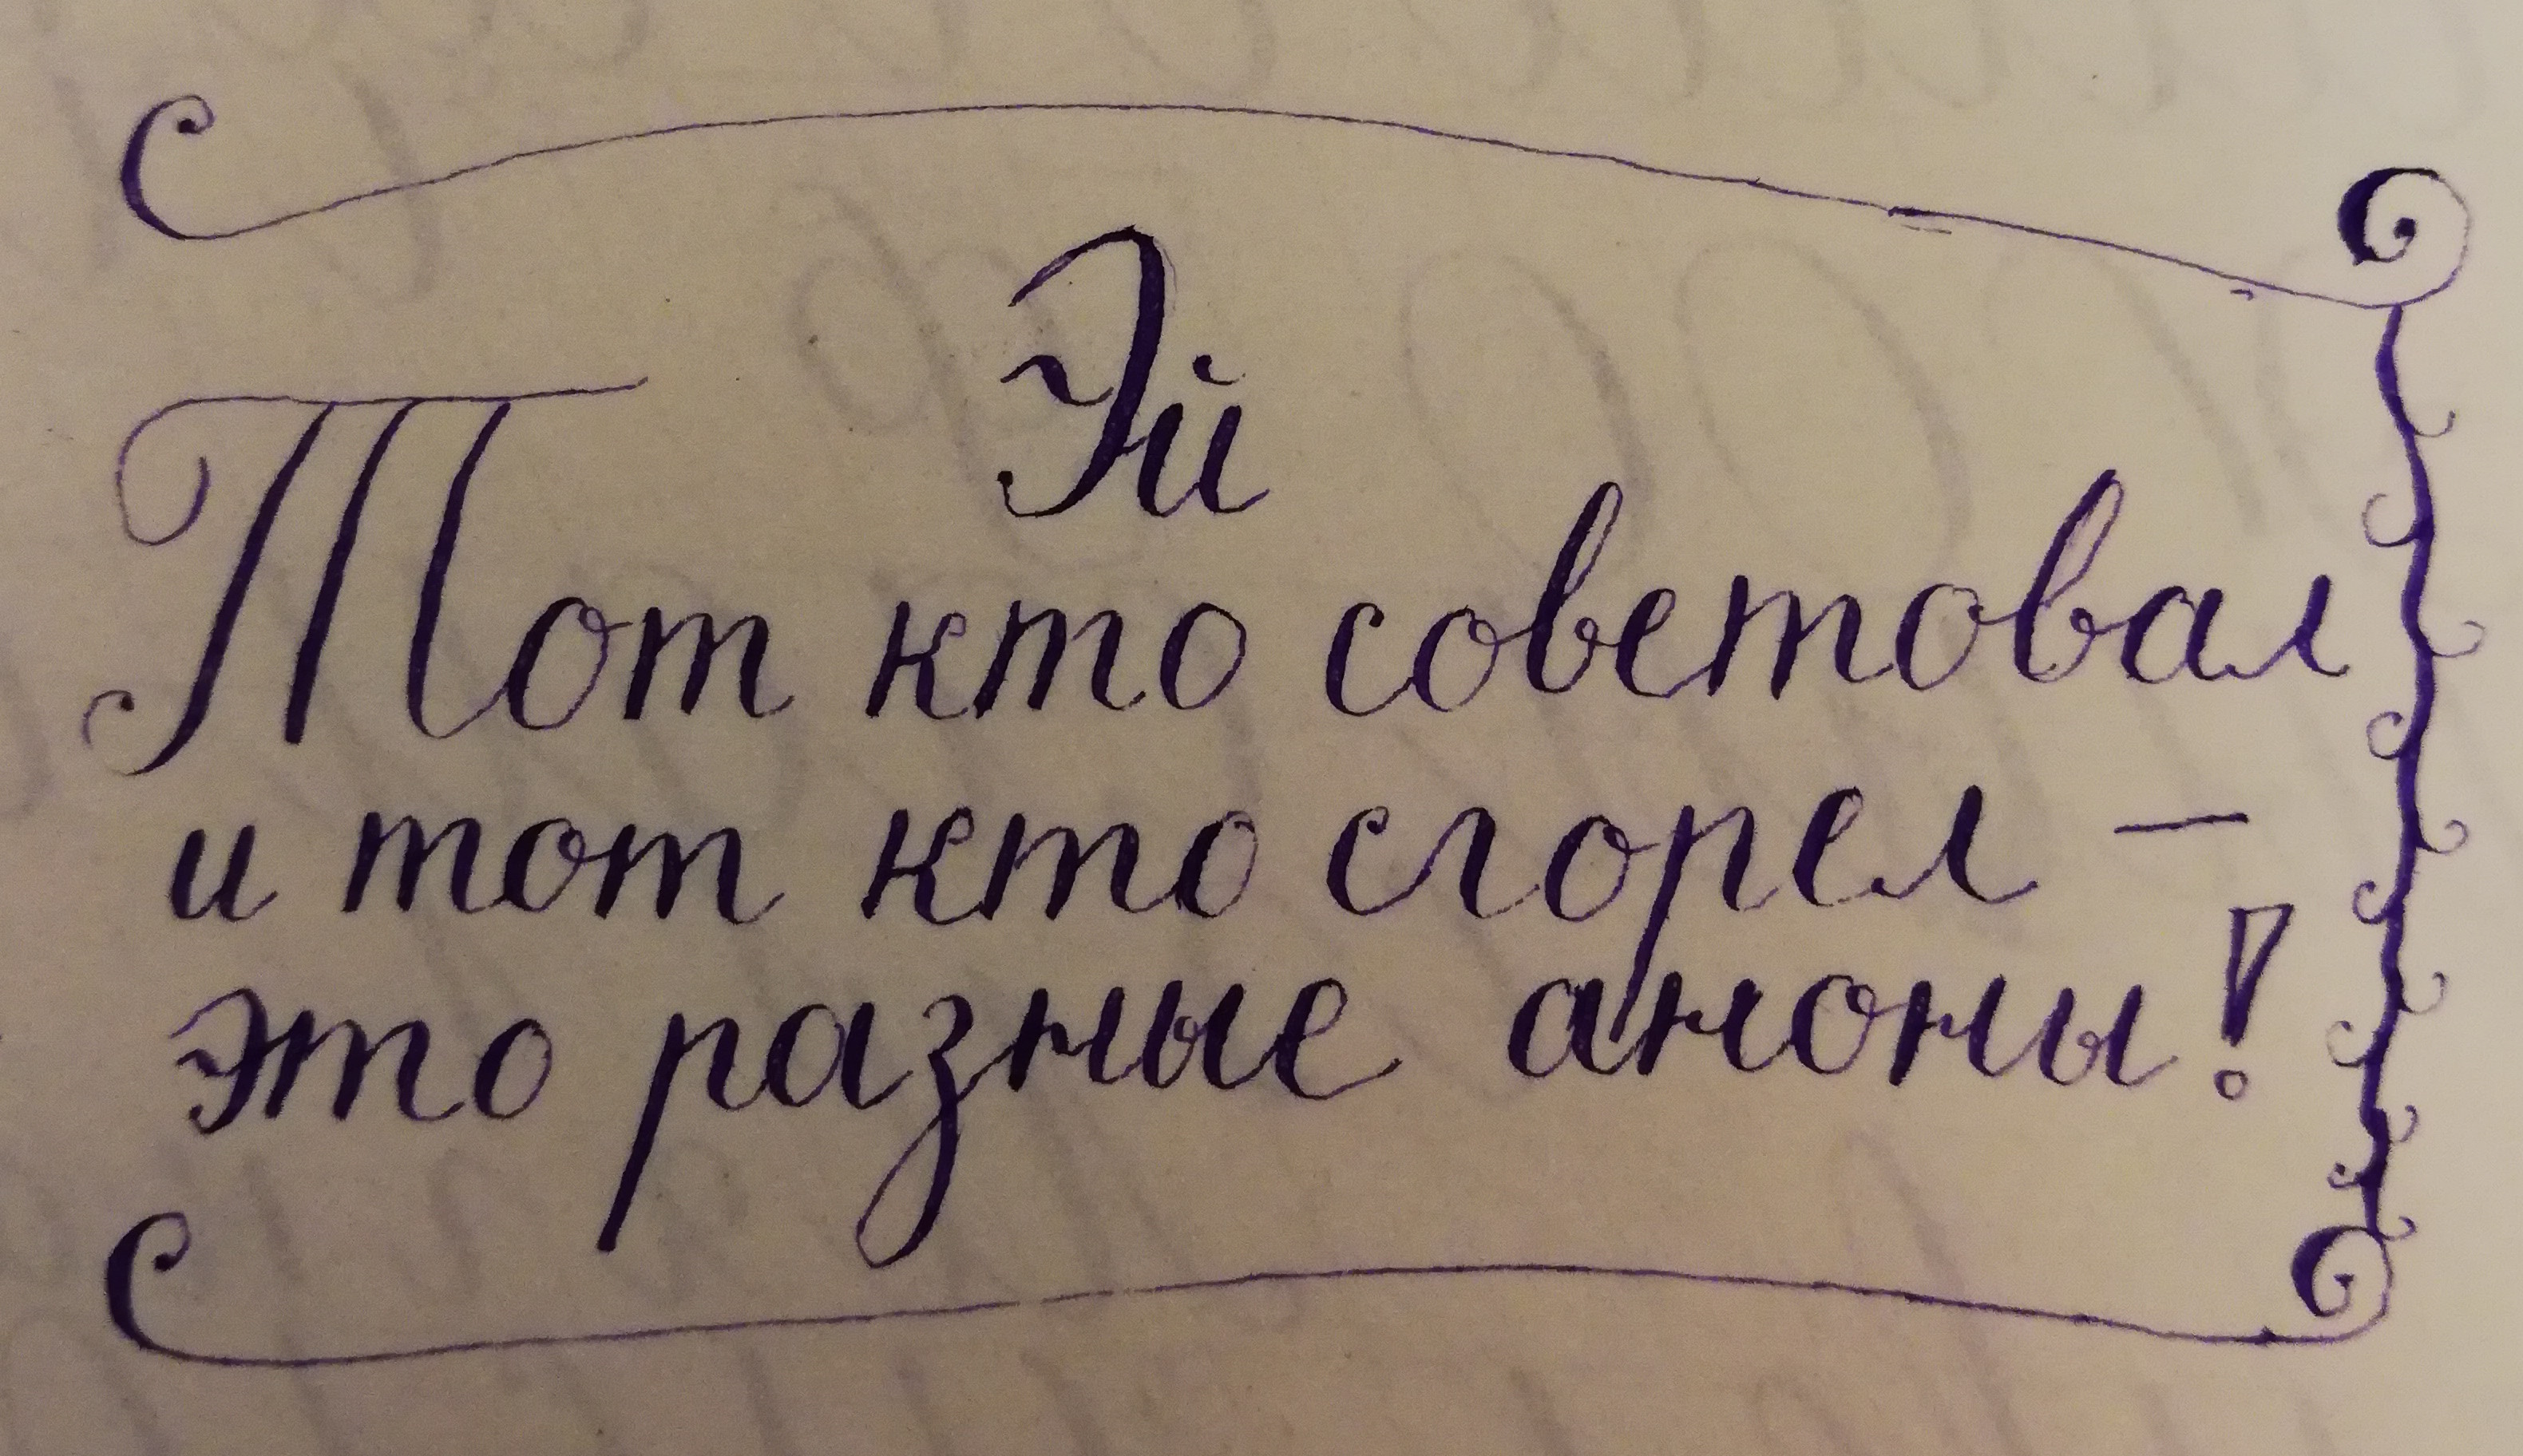 Эй
Тот кто советовал
и тот кто сгорел —
это разные аноны!